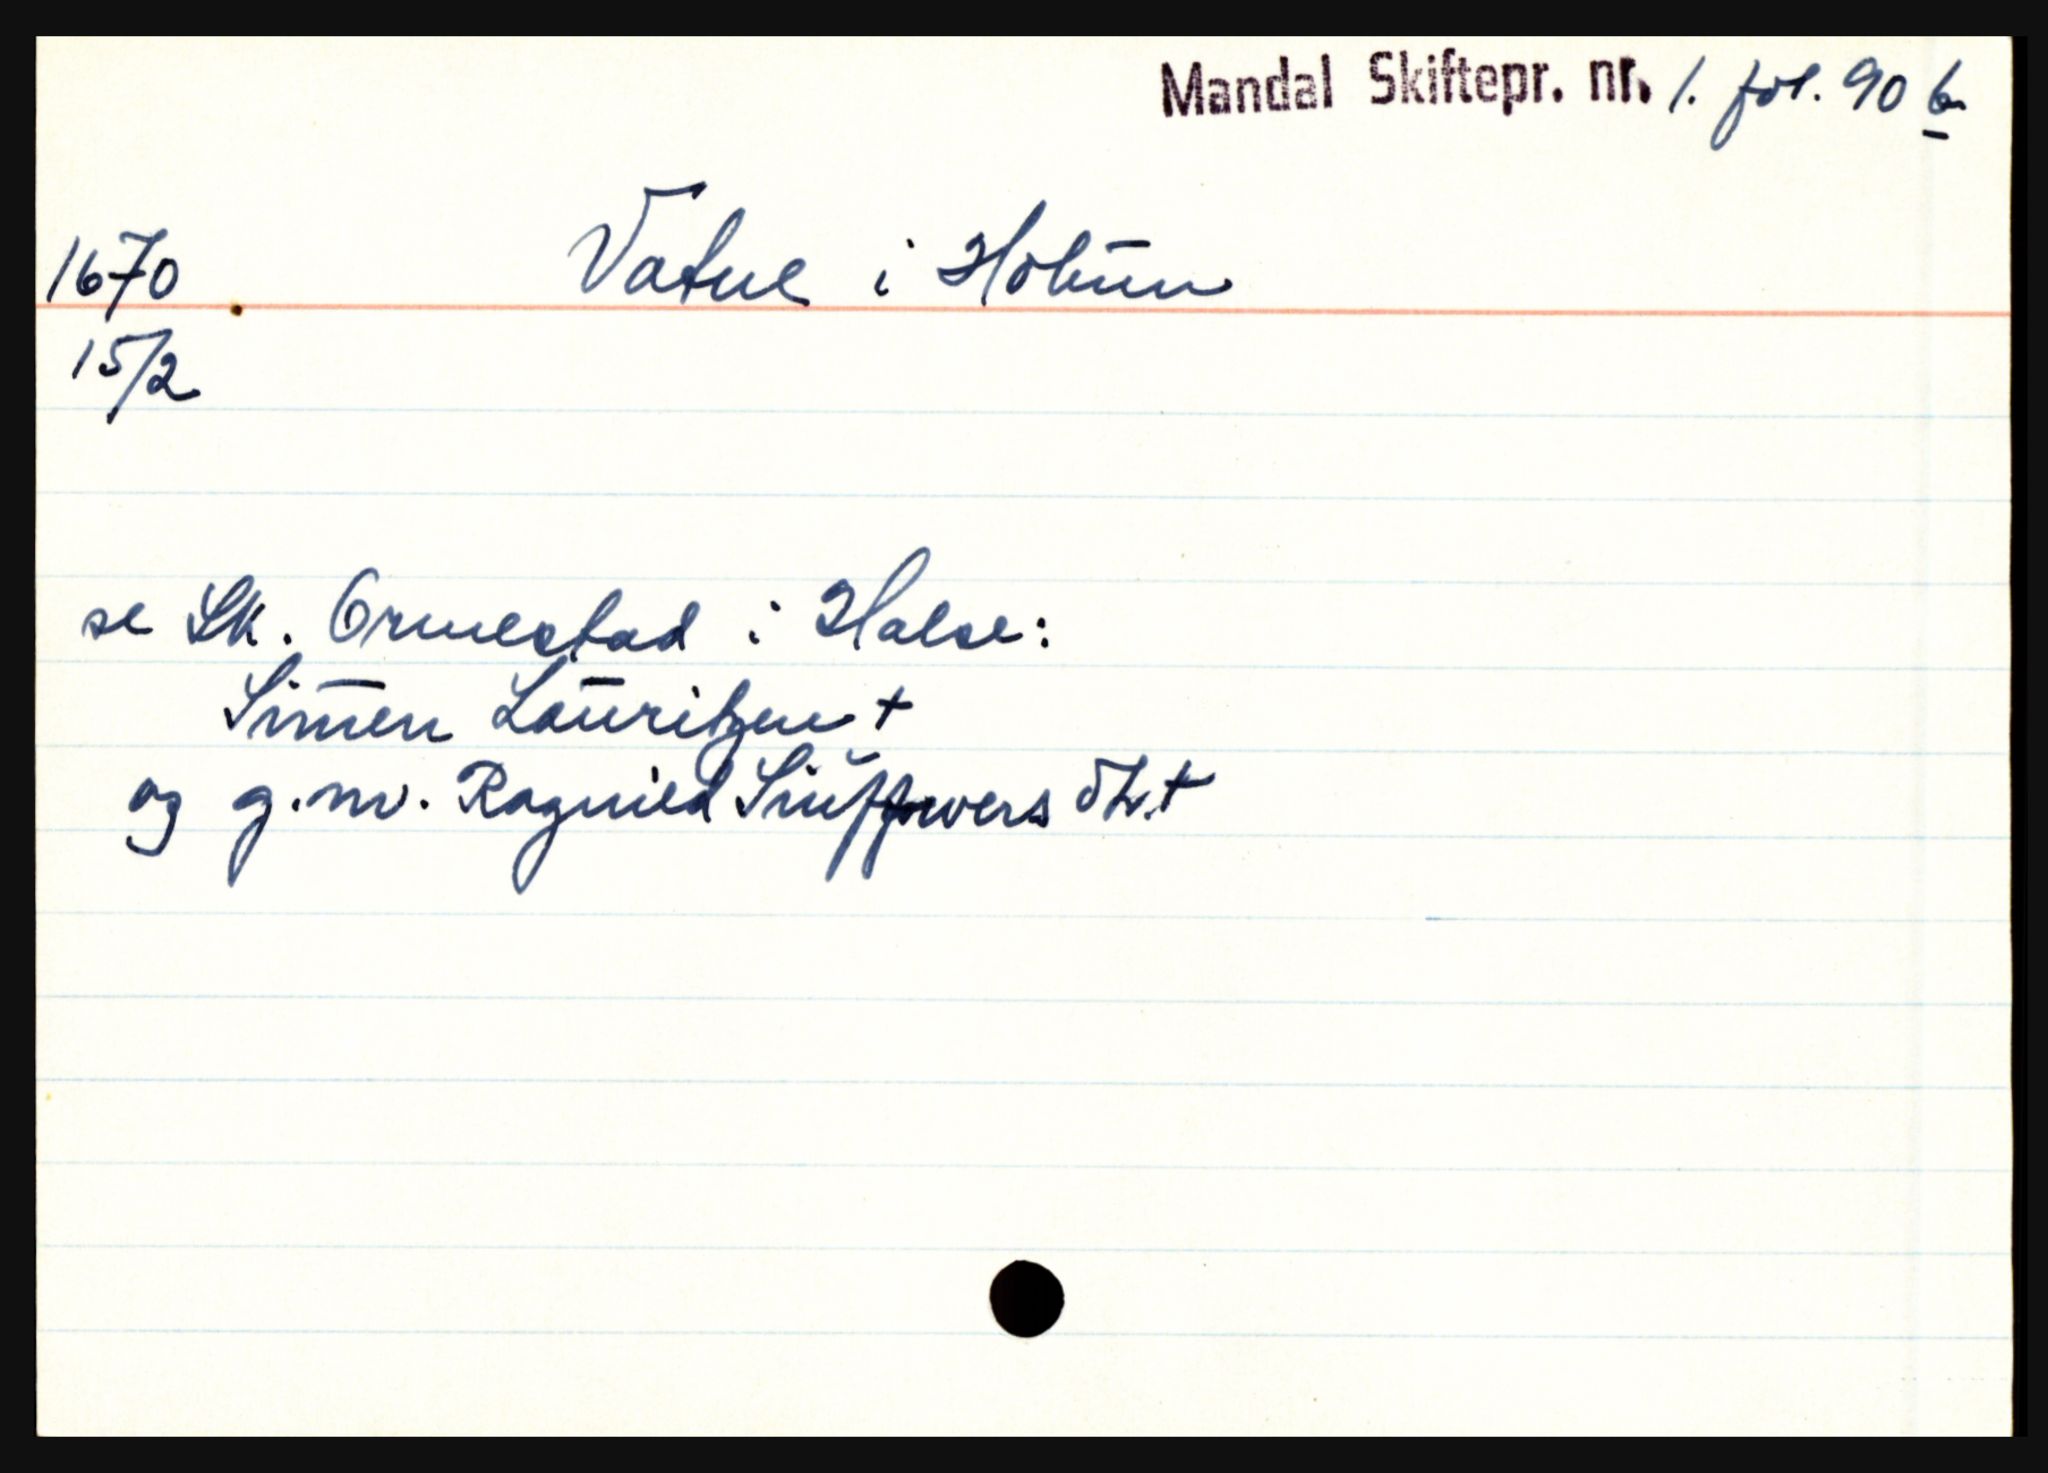 Mandal Skiftepr. nr. 1. fol. 90 b
1670 Vatne i Holum
15/2
se Sk. Ormestad i Halse:
Simen Lauritzen +
og g.m. Ragnild dtr. +